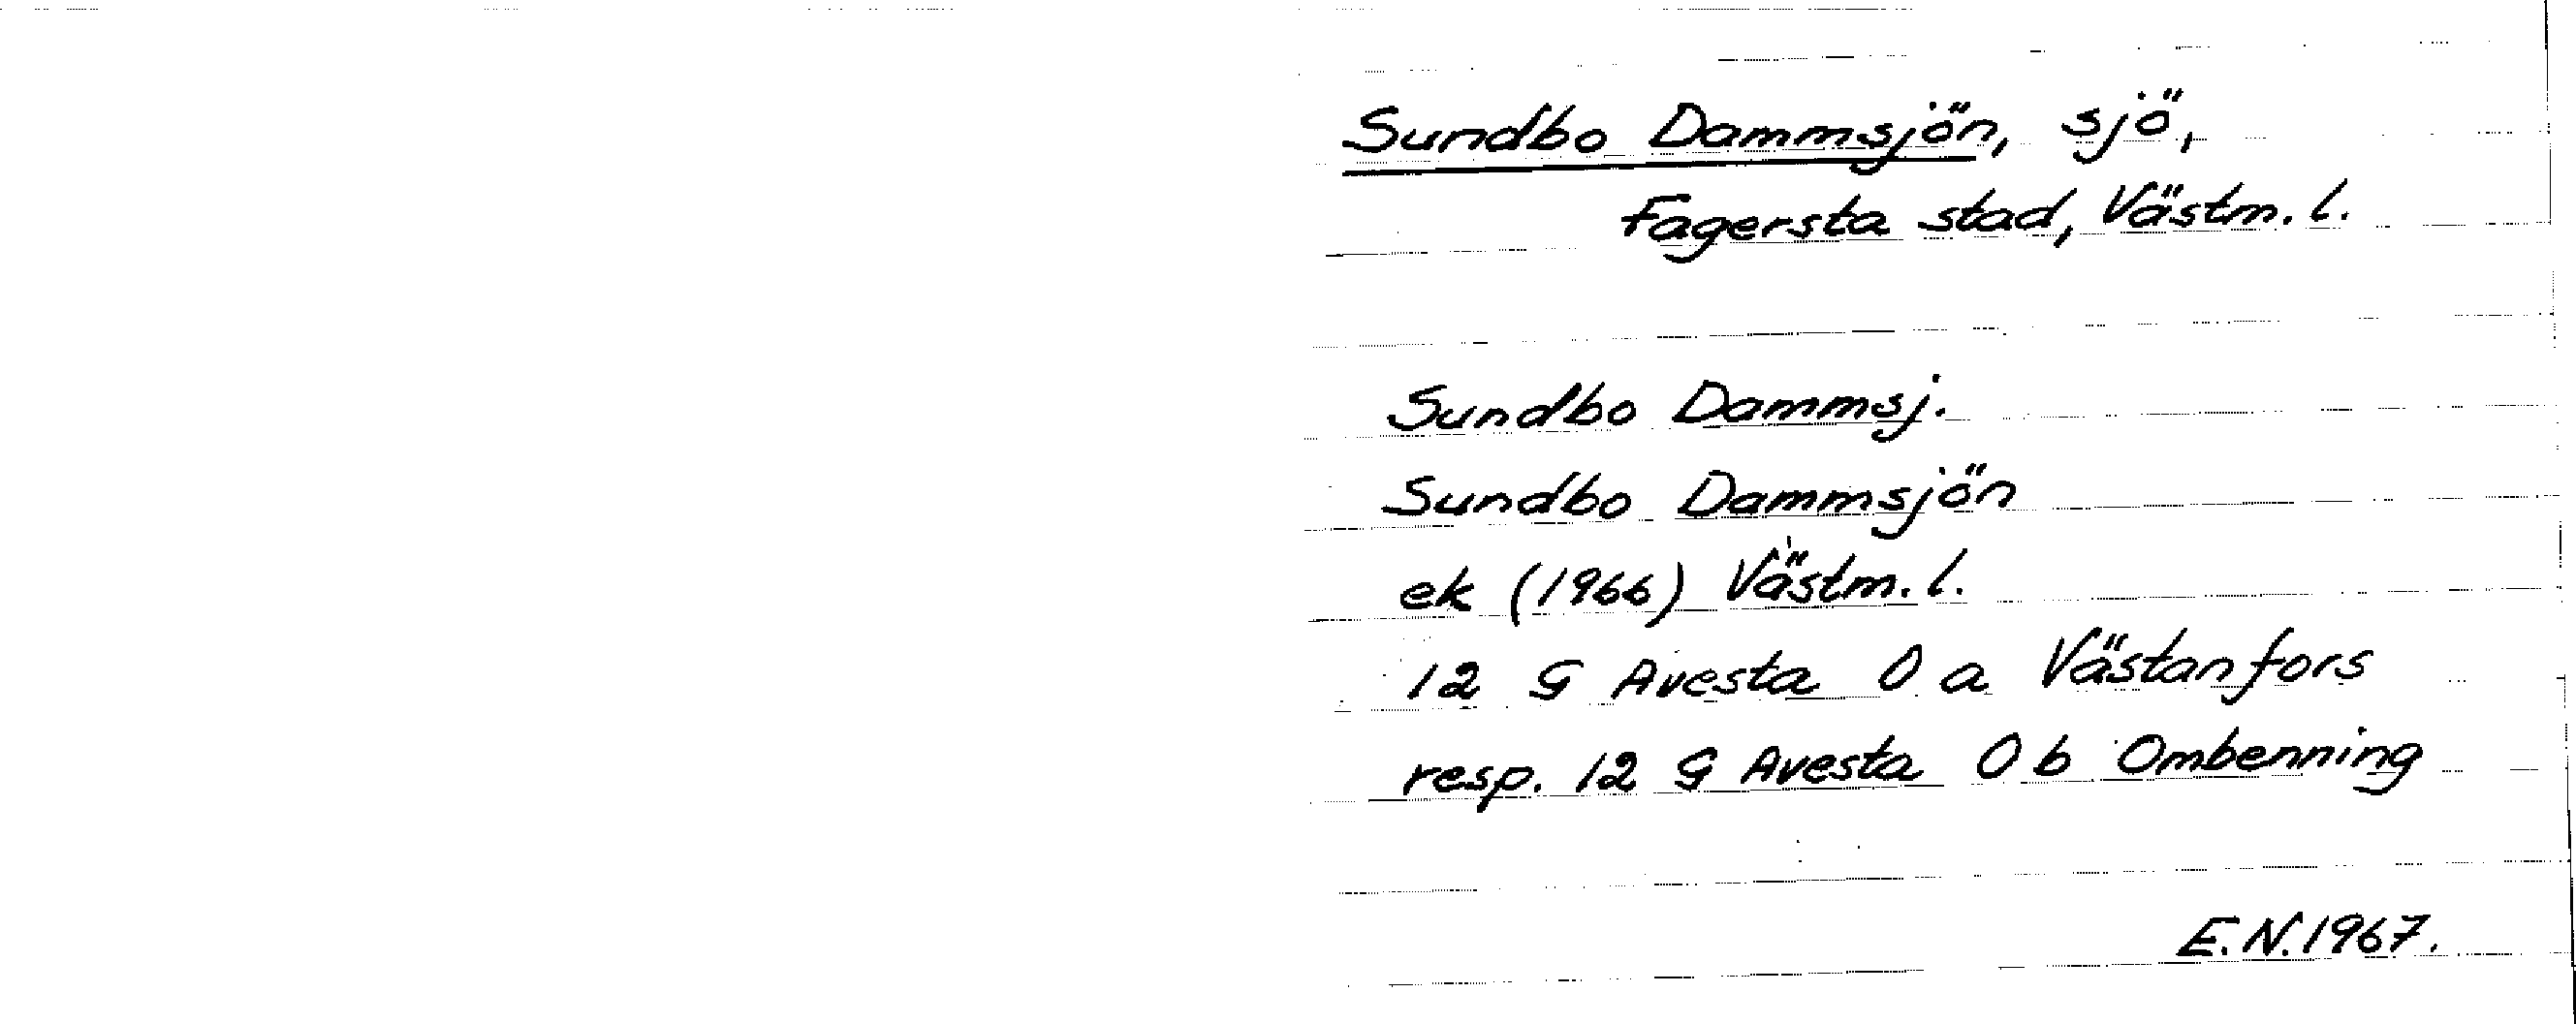 Sundbo Dammsjön, sjö,
Fagersta stad, Västm. l.
Sundbo Dammsj.
Sundbo Dammsjön
ek (1966) Västm. l.
12 G Avesta 0 a Västanfors
resp. 12 G Avesta 0 b Ombenning
E.N. 1967.